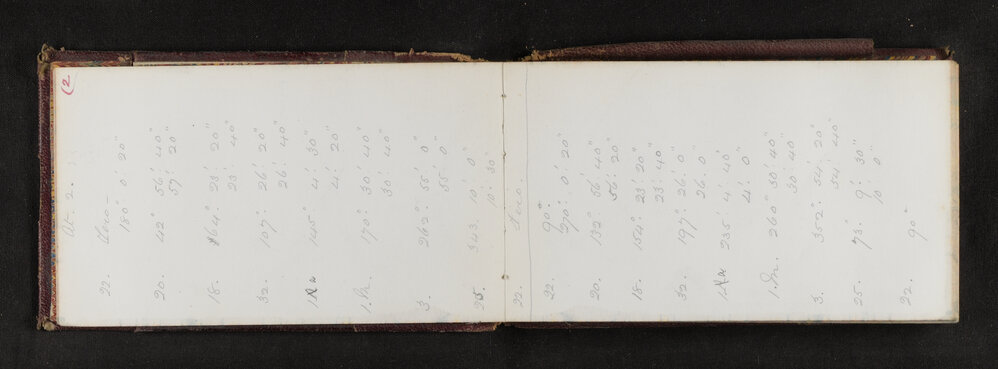 (2
At 2.
22. Zero –
180° 0' 20"
20. 42° 56' 40"
57' 20"
18. 164° 23' 20"
23' 40"
32. 107° 26' 20"
26' 40"
145° 4' 30"
4' 20"
170° 30' 40"
30' 40"
3. 262° 55' 0"
55' 0"
25. 343 10' 0"
10' 30"
22. Zero.
22. 90°
270° 0' 20"
20. 132° 56' 40"
56' 20"
18. 154° 23' 20"
23' 40"
32. 197° 26' 0"
26' 0"
235° 4' 40"
4' 0"
260° 30' 40"
30' 40"
3. 352° 54' 20"
54' 40"
25. 73° 9' 30"
10' 0"
22. 90°